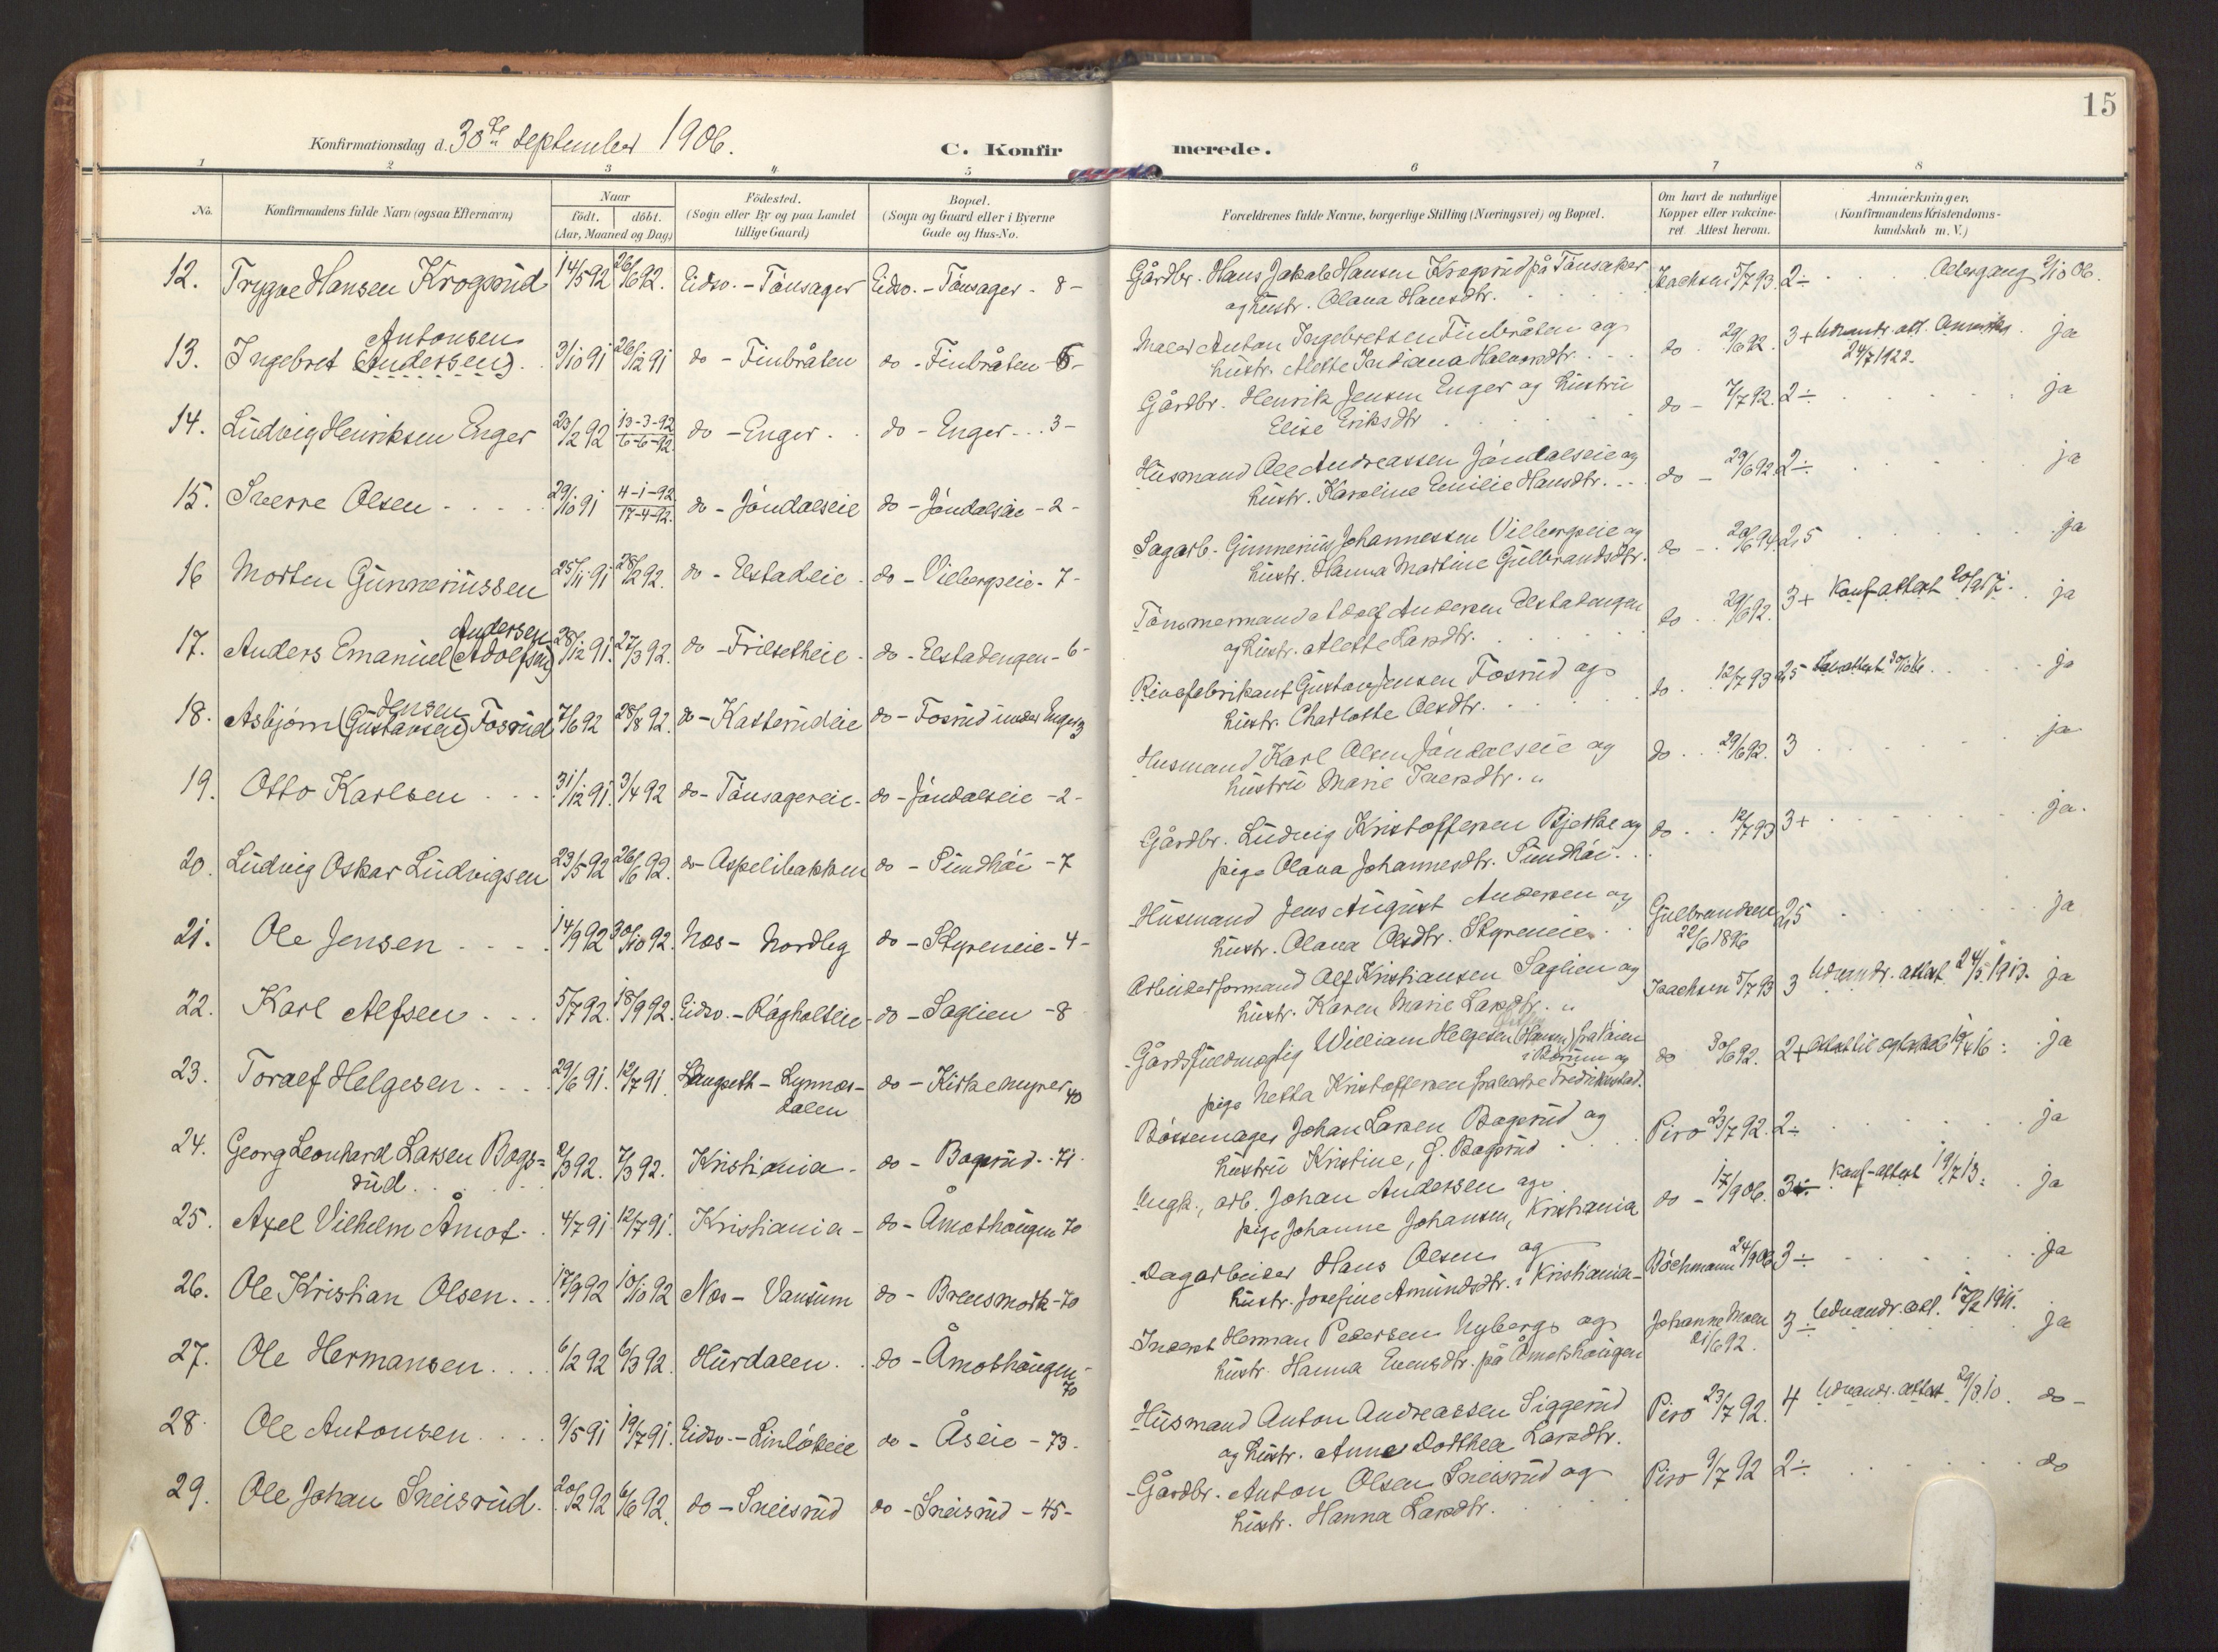 15
Konfirmationsdag d. 30te September 1906.
C. Konfir merede.
1 2 3 4 5 6 7 8
No.
Konfirmandens fulde Navn (ogsaa Efternavn)
Naar
født. døbt.
(Aar, Maaned og Dag)
Födested.
(Sogn eller By og paa Landet
tillige Gaard)
Bopæl.
(Sogn og Gaard eller i Byerne
Gade og Hus-No.
Forældrenes fulde Navne, borgerlige Stilling (Næringsvei) og Bopæl.
Om havt de naturlige
Kopper eller vakcine-
ret Attest herom.
Anmærkninger.
(Konfirmandens Kristendoms-
kundskab m. V.)
12. Trygve Hansen Krogsrud 14/5 92 26/6 92. Eidsv. - Tönsager Eidsv. - Tönsager - 8 - Gårdbr. Hans Jakob Hansen Krogsrud på Tönsaker Isachsen 5/7 93. 2÷ Adergang 9/10 06.
og hustr. Olava Hansdtr.
Antonsen
13. Ingebret (Andersen). 3/10 91 26/12 91 do - Finbråten do - Finbråten - 6 - Maler Anton Ingebretsen Finbråten og do 29/6 92. 3+ Udvandr. att. Amerika ja
hustr. Alette Indiana Halvorsdtr. 24/7 1922.
14. Ludvig Henriksen Enger 23/2 92 13-3-92 do - Enger do - Enger 3 - Gårdbr. Henrik Jensen Enger og hustru do - 7/7 92. 2÷ ja
6-6-92. Elise Eriksdtr
15. Sverre Olsen 29/10 91 4-1-92 do - Jöndalseie do - Jöndalseie - 2 - Husmand Ole Andreassen Jöndalseie og do - 29/6 92 2÷ ja
17-4-92. hustr. Karoline Emilie Hansdtr.
16 Morten Gunneriussen 25/11 91 28/2 92. do - Elstadeie do - Vilbergseie - 7 - Sagarb. Gunnerius Johannessen Vilbergseie og do - 20/6 94. 2,5 ja
hustr. Hanna Martine Gulbrandsdtr.
Andersen
17. Anders Emanuel (Adolfsen) 28/12 91. 27/3 92. do - Frilsetheie do - Elstadengen - 6 - Tömmermand Adolf Andersen Elstadengen do 29/6 92. 3+ Konf attest ja
og hustr. Alette Larsdtr.
Jensen
18. Asbjörn (Gustavsen) Fosrud 7/6 92 28/8 92. do - Katterudeie do - Fosrud under Enger 3 Rivefabrikant Gustav Jensen Fosrud og do 12/7 93 2,5 ja
hustr. Charlotte Olsdtr.
19. Otto Karlsen 31/12 91. 3/4 92 do - Tönsagereie do - Jöndalseie - 2 - Husmand Karl Olsen Jöndalseie og do 29/6 92. 3 ja
hustru Marie Iversdtr. "
20. Ludvig Oskar Ludvigsen 23/5 92 26/6 92. do - Aspelibakken do - Sundhöi - 7 Gårdbr. Ludvig Kristoffersen Bjerke og do 12/7 93 3+ ja.
pige Olava Johannesdtr. Sundhöi.
21. Ole Jensen 14/9 92 30/10 92. Næs - Nordleg do - Styreneie - 4 - Husmand Jens August Andersen og Gulbrandsen 2,5 ja
hustr. Olava Olsdtr. Styreneie. 22/6 1896
22. Karl Alfsen 5/7 92. 18/9 92. Eidsv. - Rågholteie do - Saglien - 8 Arbeiderformand Alf Kristiansen Saglien og Isachsen 5/7 93 3 Udvandr. attest 24/5 1913. ja
hustr. Karen Marie Larsdtr. "
23. Toralf Helgesen 29/6 91. 12/7 91 Langseth - Lynnæs- do - Kirkemyrer 40 Gårdsfuldmægtig William Helgesen (Hansen) fra do 30/6 92. 2+ ja
dalen i Bærum og
pige Netta Kristoffersen fra Fredrikstad.
24. Georg Leonhard Larsen Bogs- 2/3 92. 7/3 92. Kristiania - do - Bogsrud - 71 Bössemager Johan Larsen Bogsrud og Piro 23/7 92. 2÷ ja
rud. hustru Kristine, f. Bogsrud
25. Axel Vilhelm Åmot. 4/7 91. 12/7 91. Kristiania - do - Åmothaugen 70 Ungk., arb. Johan Andersen og do - 17/9 06. 3÷ Konf-attest 19/7 13. ja
pige Johanne Johansen, Kristiania
26. Ole Kristian Olsen. 17/9 92 10/10 92 Næs - Vansum do - Brensmork - 70 Dagarbeider Hans Olsen og Böchmann 24/9 06 3÷ Ja
hustr. Josefine Amundsdtr. i Kristiania
27. Ole Hermansen. 6/2 92 6/3 92. Hurdalen. do - Åmothaugen - 70 Inderst Herman Pedersen Nyberg og Johanne Moen 3÷ Udvandr. att. 17/2 1911. ja
hustr. Hanna Evensdtr. på Åmothaugen 21/6 92.
28. Ole Antonsen 9/5 91 19/7 91. Eidsv. - Linlökeie do - Åseie - 73. Husmand Anton Andreassen Siggerud Piro 23/7 92. 4 Udvandr. attest 29/3 10. do -
og hustr. Anne Dorthea Larsdtr.
29. Ole Johan Sneisrud. 20/2 92 6/6 92. do - Sneisrud do - Sneisrud - 45 - Gårdbr. Anton Olsen Sneisrud og Piro 9/7 92 2÷ do
hustr. Hanna Larsdtr.